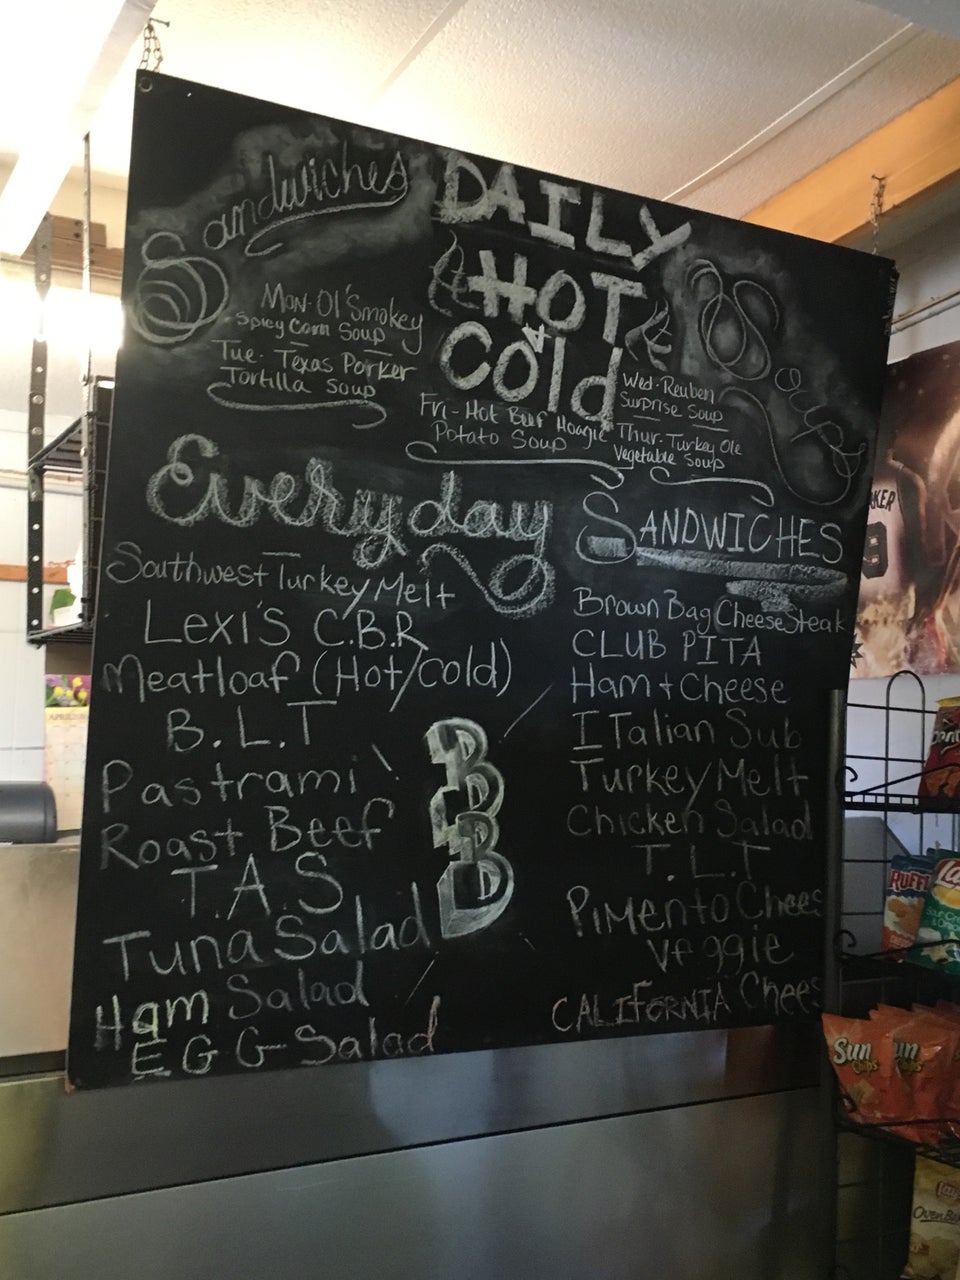 Sandwiches
DAILY
HOT
&
Cold
Soups
Mon-Ol'Smokey
Spicy Corn Soup
Tue- Texas Porker
Tortilla Soup
Wed-Reuben
Surprise Soup
Thur-Turkey Ole
Vegetable Soup
Fri-Hot Beef Hoagie
Potato Soup
Everyday
SANDWICHES
Southwest Turkey Melt
LEXI'S C.B.R
Meatloaf (Hot/Cold)
B.L.T
Pastrami
Roast Beef
T.A.S
Tuna Salad
Ham Salad
EGG Salad
BBD
Brown Bag Cheese Steak
CLUB PITA
Ham + Cheese
ITalian Sub
Turkey Melt
Chicken Salad
T.L.T
PiMento Chees
Veggie
CALIFORNIA Chees
RUFFL
Lay
Sour Cre
& On
Sun
Chips
un
Chips
Lay
Oven Ba
APRIL